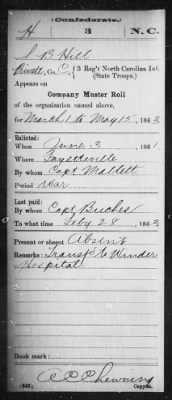 (Confederate.)
H 3 N.C.
S B Hill
Private, Co. C, 3 Reg't North Carolina Inf.
(State Troops.)
Appears on
Company Muster Roll
of the organization named above,
for March 1 to May 15, 1863
Enlisted:
When June 3, 1861
Where Fayetteville
By whom Capt Mallett
Period War
Last paid:
By whom Capt
To what time Feby 28, 1863
Present or absent Absent
Remarks: Transf to Winder
Hospital
Book mark:
Copyist.